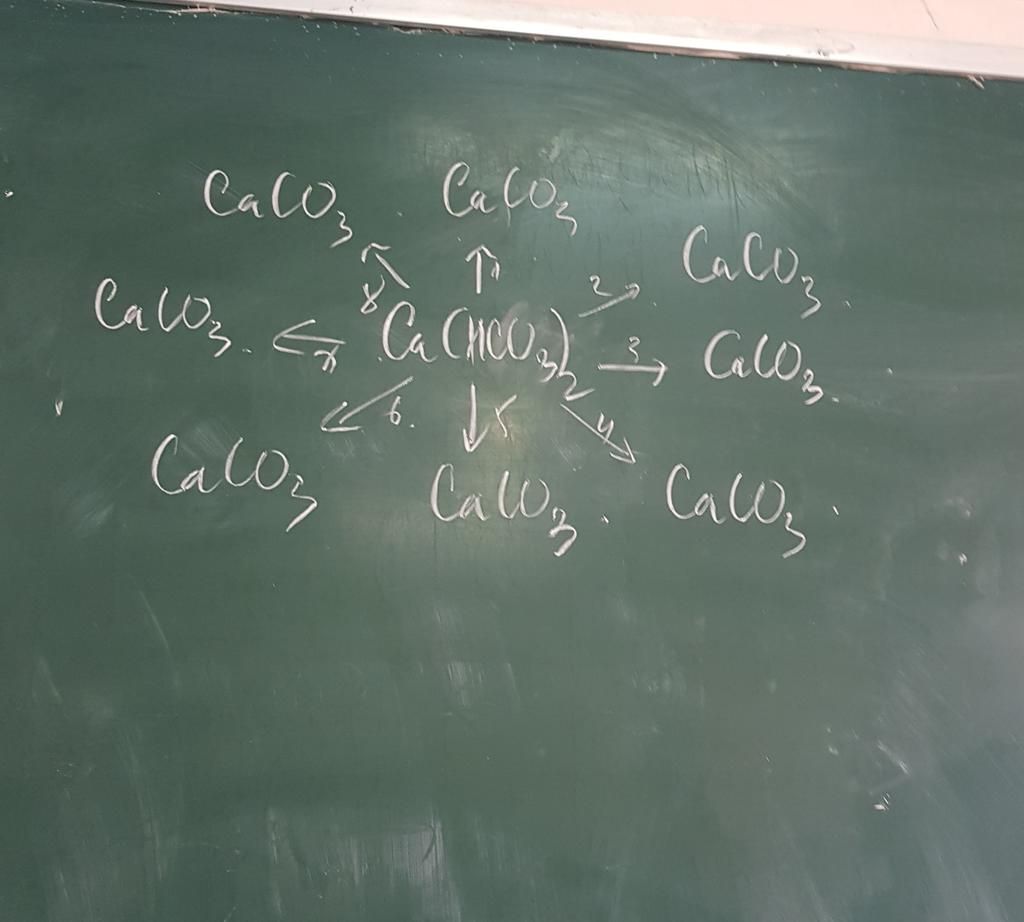 CaCO3 CaCO3
CaCO3
8 2
CaCO3 7 Ca(HCO3)2 3 CaCO3
6 5 4
CaCO3 CaCO3 CaCO3